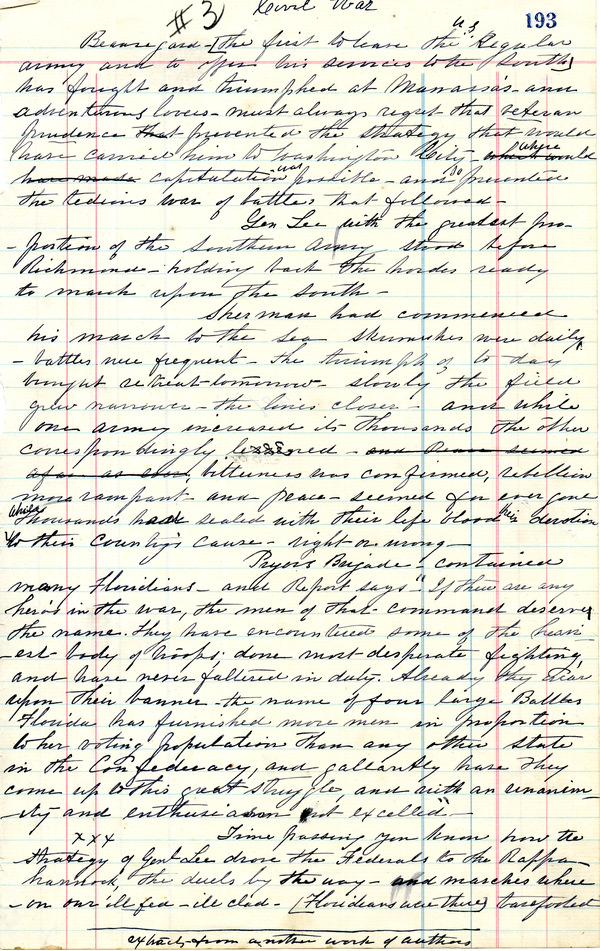 #3 Civil War 193
Beauregard - [The first to leave the U.S. Regular
army and to offer his services to the South]
has fought and triumphed at Manassas - and
adventurous lovers - must always regret that veteran
prudence that prevented the strategy that would
have carried him to Washington City - where would
have made capitulation was possible - and so prevented
the tedious war of battles that followed -
Gen Lee with the greatest pro-
-portion of the Southern Army stood before
Richmond - holding back the hordes ready
to march upon the South -
Sherman had commenced
his march to the sea skirmishes were daily,
- battles were frequent - the triumph of to day
brought retreat tomorrow - slowly the field
grew narrower - the lines closer - and while
one army increased its thousands the other
correspondingly lessened - and Peace seemed
afar as ever, bitterness was confirmed, rebellion
more rampant - and peace - seemed for ever gone
whilst
Thousands had sealed with their life blood their devotion
to their country's cause - right or wrong -
Pryors Brigade - contained
many Floridians - and Report says - "If there are any
hero's in the war, the men of that command deserve
the name. They have encountered some of the heavi-
-est body of troops, done most desperate fighting,
and have never faltered in duty. Already they bear
upon their banner - the name of four large Battles
Florida has furnished more men in proportion
to her voting population than any other state
in the Confederacy, and gallantly have they
come up to this great struggle, and with an unanim-
-ity and enthusiasm not excelled" -
x x x Time passing you know how the
strategy of Genl Lee drove the Federals to the Rappa-
hannock, the duels by the way - and marches where
- on our ill fed - ill clad - [Floridians were there] barefooted
extracts from another work of authors